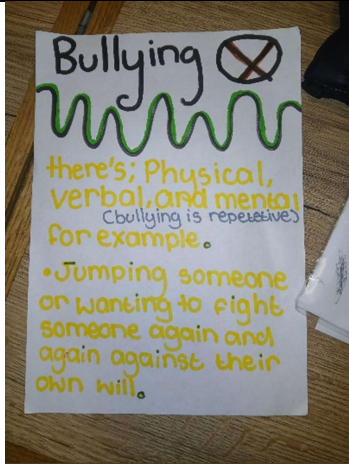 Bullying
there's; Physical,
verbal, and mental
(bullying is repetetive)
for example.
•Jumping someone
or wanting to fight
someone again and
again against their
own will.